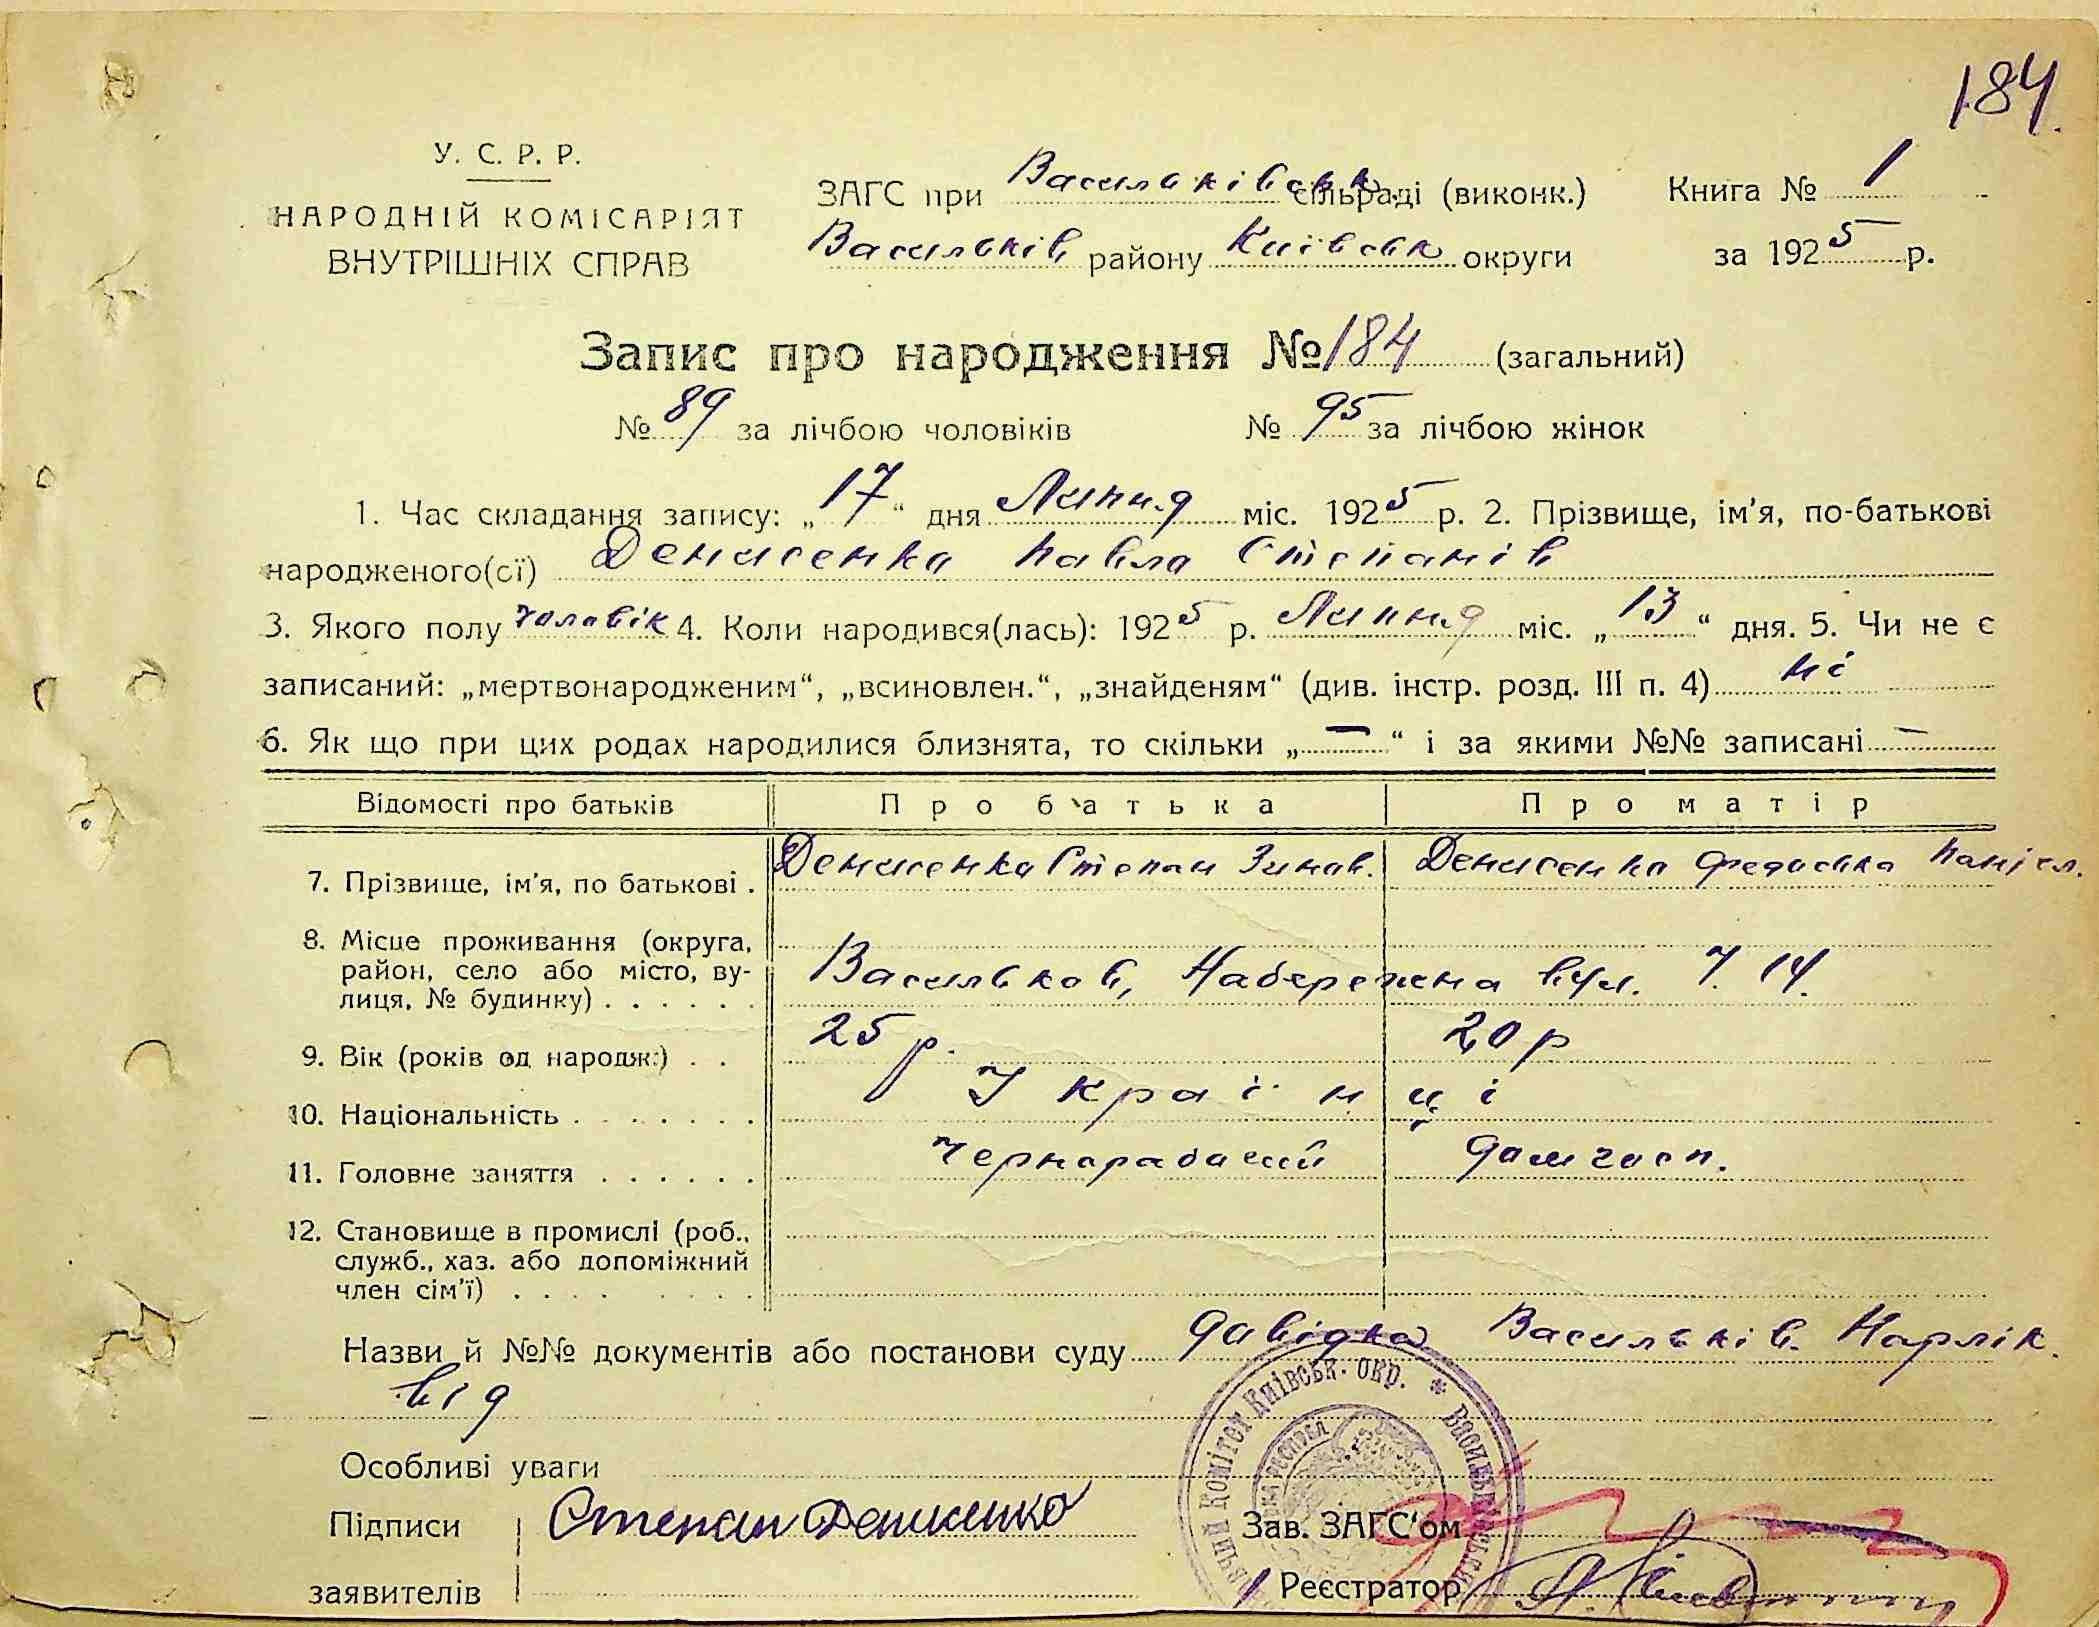 184.
У. С. Р. Р.
НАРОДНІЙ КОМІСАРІЯТ
ВНУТРІШНІХ СПРАВ
ЗАГС при Васильківськ. сільраді (виконк.) Книга № 1
Васильків району Київськ округи за 1925 р.
Запис про народження № 184 (загальний)
№ 89 за лічбою чоловіків № 95 за лічбою жінок
1. Час складання запису: „17“ дня Липня міс. 1925 р. 2. Прізвище, ім'я, по-батькові
народженого(сї) Денисенко Павло Степанів
3. Якого полу чоловік 4. Коли народився(лась): 1925 р. Липня міс. „13“ дня. 5. Чи не є
записаний: „мертвонародженим“, „всиновлен.“, „знайденям“ (див. інстр. розд. III п. 4) ні
6. Як що при цих родах народилися близнята, то скільки „—“ і за якими №№ записані —
Відомості про батьків Про батька Про матір
7. Прізвище, ім'я, по батькові . Денисенко Степан Зинов. Денисенко Федоська
8. Місце проживання (округа,
район, село або місто, ву-
лиця, № будинку) . . . . . . Васильков, Набережна вул. 14.
9. Вік (років од народж.) . . 25 р. 20 р
10. Національність . . . . . . . Українці
11. Головне заняття . . . . . . Чернорабочий домгосп.
12. Становище в промислі (роб.,
служб., хаз. або допоміжний
член сім'ї) . . . . . . . .
Назви й №№ документів або постанови суду довідка Васильків. Нарлік.
від
Особливі уваги
Підписи Степан Денисенко Зав. ЗАГС'ом
заявителів Реєстратор
Комітет Київськ. окр. * Васильківський